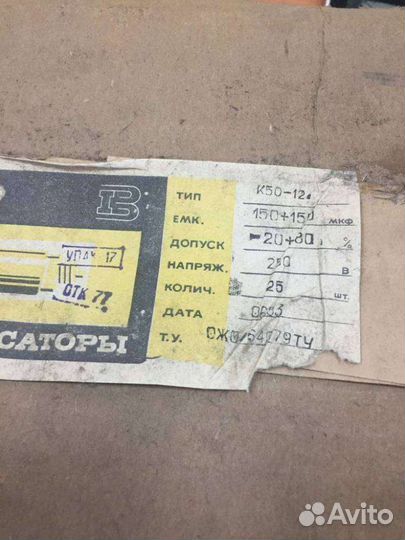 ТИП К50-12
ЕМК. 150+150 МКФ
ДОПУСК -20+80 %
НАПРЯЖ. 250 В
КОЛИЧ. 25 ШТ.
ДАТА
Т.У.
УПАК 17
ОТК 77
САТОРЫ
Avito